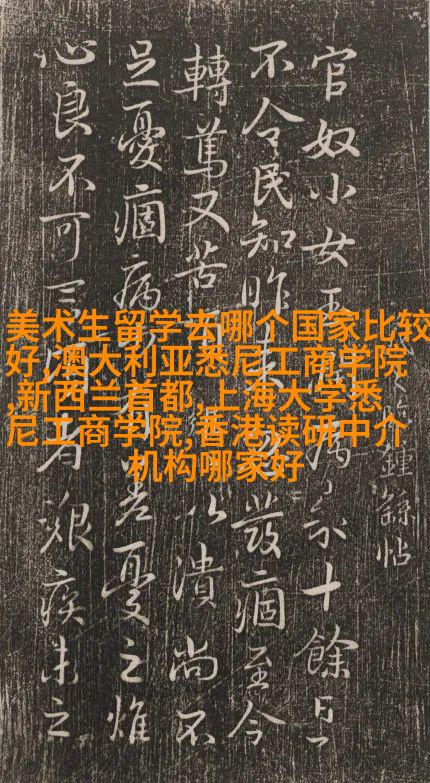 美术生留学去哪个国家比较
好,澳大利亚悉尼工商学院
,新西兰首都,上海大学悉
尼工商学院,香港读研中介
机构哪家好
鍾繇帖
官奴小女玉病来十餘日
不令民知昨来發痼至今
轉篤又苦以潰尚不
足憂痼病差憂之燋
心良不可言者艱疾未之